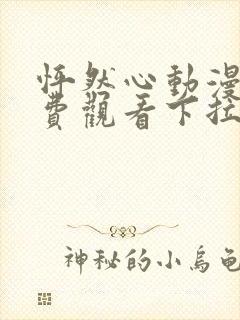 怦然心動漫
費觀看下拉
神秘的小烏龜